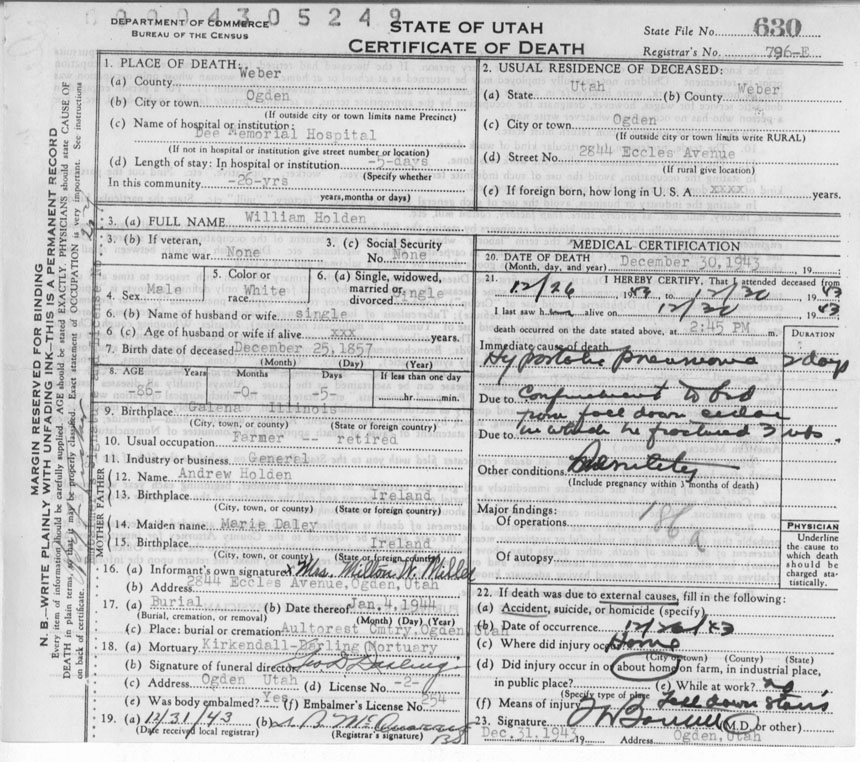 0000 4 3 0 5 2 4 9
DEPARTMENT OF COMMERCE
BUREAU OF THE CENSUS
STATE OF UTAH
CERTIFICATE OF DEATH
State File No. 630
Registrar's No. 796-E
MARGIN RESERVED FOR BINDING
N. B.—WRITE PLAINLY WITH UNFADING INK—THIS IS A PERMANENT RECORD
Every item of information should be carefully supplied. AGE should be stated EXACTLY. PHYSICIANS should state CAUSE OF
DEATH in plain terms, so that it may be properly classified. Exact statement of OCCUPATION is very important. See instructions
on back of certificate.
1. PLACE OF DEATH:
(a) County Weber
(b) City or town Ogden
(If outside city or town limits name Precinct)
(c) Name of hospital or institution:
Dee Memorial Hospital
(If not in hospital or institution give street number or location)
(d) Length of stay: In hospital or institution -5-days
(Specify whether
In this community -26-yrs
years, months or days)
2. USUAL RESIDENCE OF DECEASED:
(a) State Utah (b) County Weber
(c) City or town Ogden
(If outside city or town limits write RURAL)
(d) Street No. 2844 Eccles Avenue
(If rural give location)
(e) If foreign born, how long in U. S. A. xxxx years.
3. (a) FULL NAME William Holden
3. (b) If veteran, name war None
3. (c) Social Security No. None
4. Sex Male
5. Color or race White
6. (a) Single, widowed, married or divorced Single
6. (b) Name of husband or wife single
6. (c) Age of husband or wife if alive xxx years.
7. Birth date of deceased December 25, 1857
(Month) (Day) (Year)
8. AGE Years Months Days If less than one day
-86- -0- -5- hr. min.
9. Birthplace Galena Illinois
(City, town, or county) (State or foreign country)
10. Usual occupation Farmer -- retired
11. Industry or business General
FATHER
12. Name Andrew Holden
13. Birthplace Ireland
(City, town, or county) (State or foreign country)
MOTHER
14. Maiden name Marie Daley
15. Birthplace Ireland
(City, town, or county) (State or foreign country)
16. (a) Informant's own signature x Mrs. Milton W. Miller
(b) Address 2844 Eccles Avenue, Ogden, Utah
17. (a) Burial (b) Date thereof Jan. 4, 1944
(Burial, cremation, or removal) (Month) (Day) (Year)
(c) Place: burial or cremation Aultorest Cmtry. Ogden, Utah
18. (a) Mortuary Kirkendall-Darling Mortuary
(b) Signature of funeral director Geo D Darling
(c) Address Ogden Utah (d) License No. -2-
(e) Was body embalmed? Yes (f) Embalmer's License No. 254
19. (a) 12/31/43 (b)
(Date received local registrar) (Registrar's signature)
MEDICAL CERTIFICATION
20. DATE OF DEATH
(Month, day, and year) December 30, 1943, 19
21. I HEREBY CERTIFY, That I attended deceased from
12/26, 1943, to 12/30 1943
I last saw h alive on 12/30 1943
death occurred on the date stated above, at 2:45 PM m.
DURATION
Immediate cause of death
Hypostatic Pneumonia 2 days
Due to Confinement to bed
from fall down cellar
Due to in which he fractured 3 ribs.
Other conditions Senility
(Include pregnancy within 3 months of death)
Major findings:
Of operations
186a
Of autopsy
PHYSICIAN
Underline
the cause
to which
death
should be
charged sta-
tistically.
22. If death was due to external causes, fill in the following:
(a) Accident, suicide, or homicide (specify)
(b) Date of occurrence 12/26/43
(c) Where did injury occur? Home
(City or town) (County) (State)
(d) Did injury occur in or about home, on farm, in industrial place,
in public place? (e) While at work? no
(Specify type of place)
(f) Means of injury Fall down stairs
23. Signature (M.D. or other)
Dec. 31, 1943 19 Address Ogden, Utah